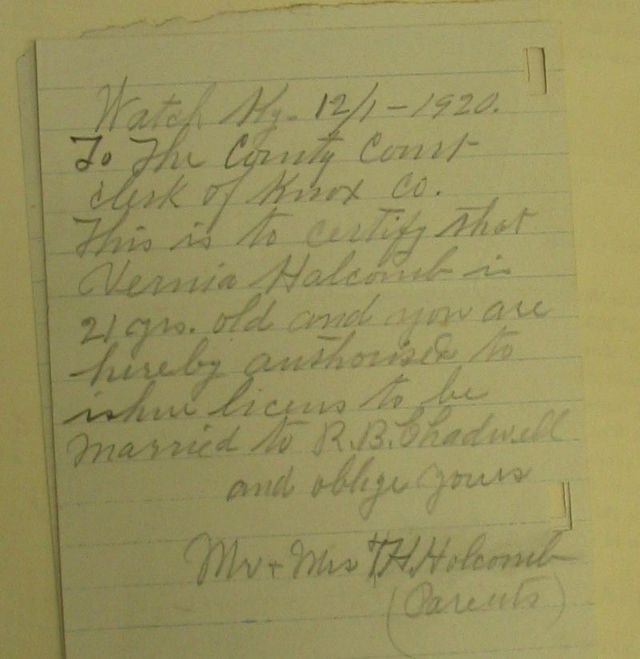 Watch Ky. 12/1-1920.
To The County Court
clerk of Knox Co.
This is to certify that
Vernia Halcomb is
21 yrs. old and you are
hereby authorised to
ishue licens to be
married to R.B. Chadwell
and oblige yours
Mr + Mrs T.H. Holcomb
(Parents)